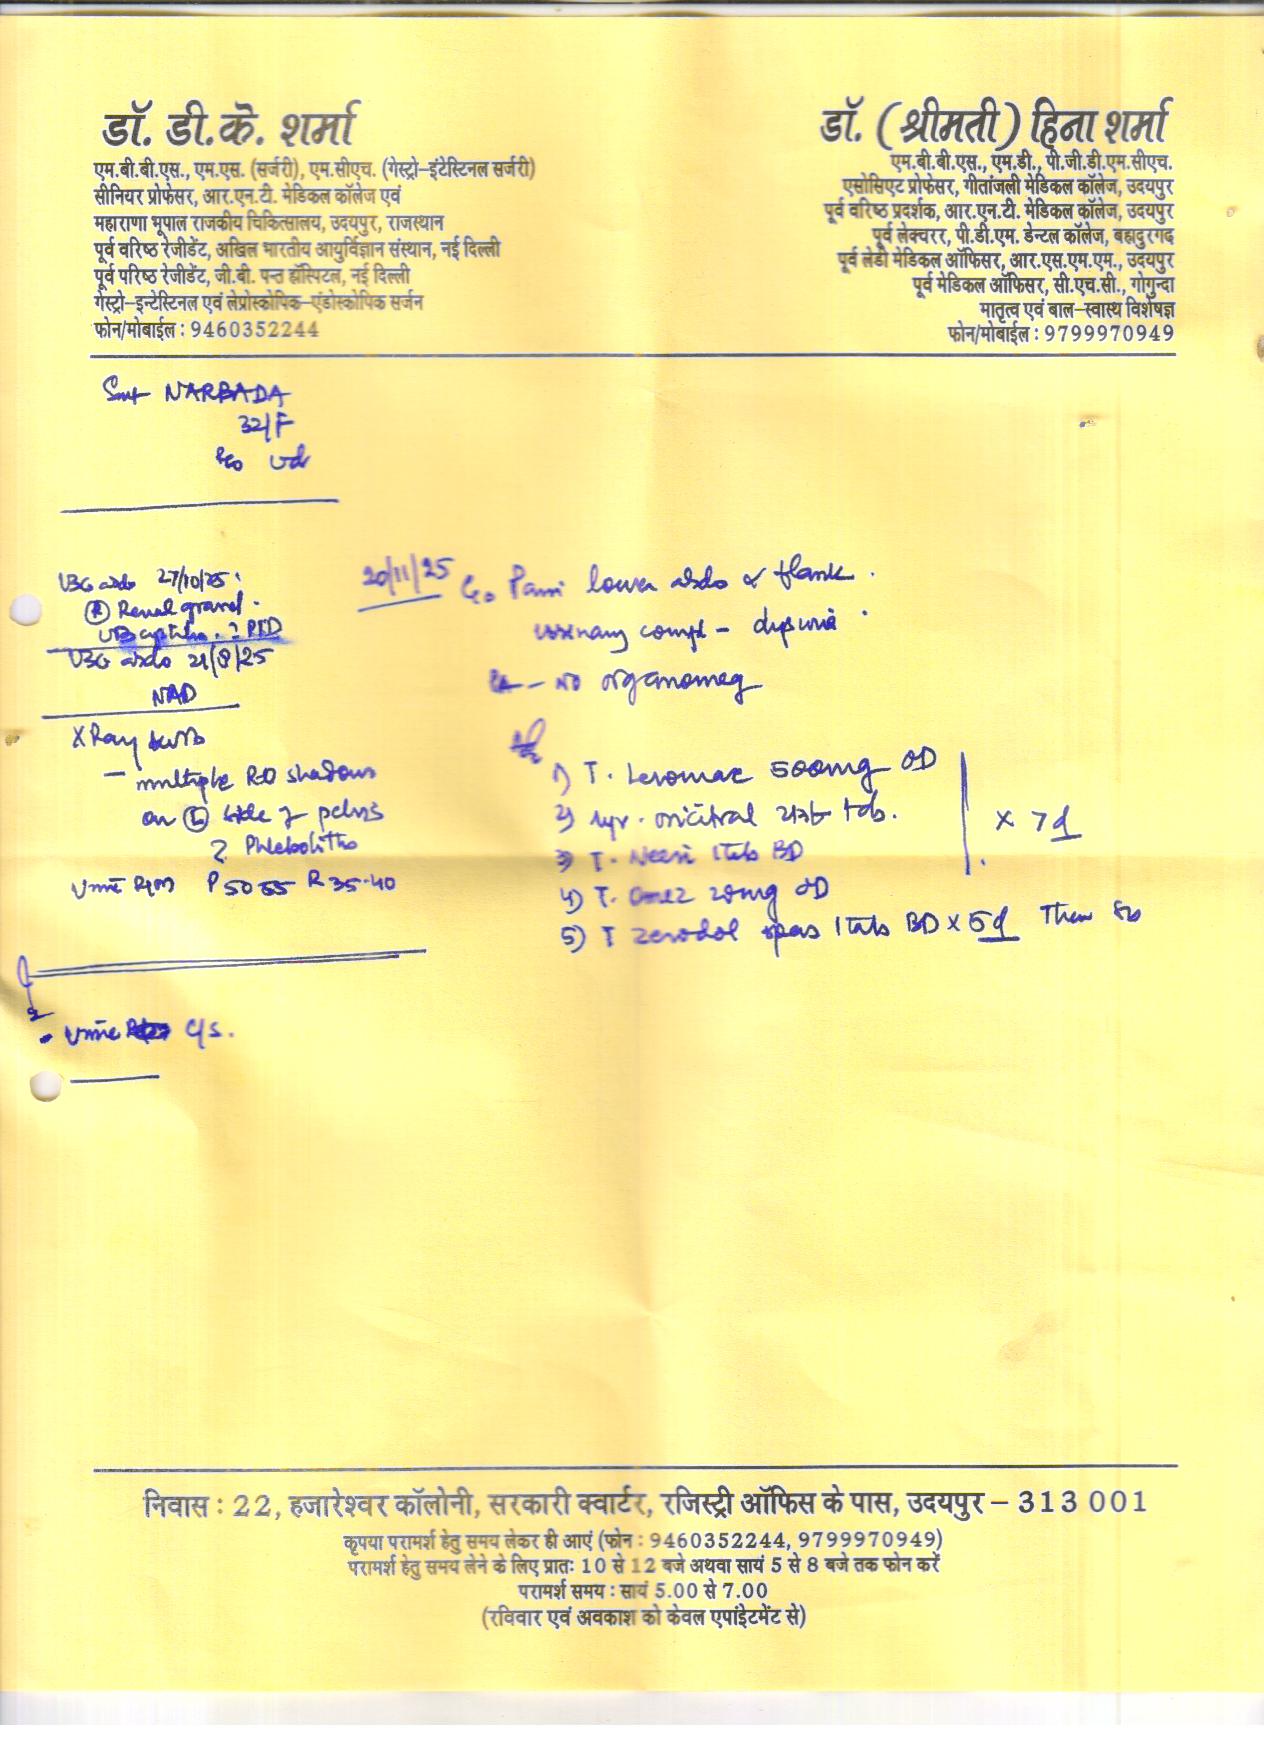 डॉ. डी.के. शर्मा
एम.बी.बी.एस., एम.एस. (सर्जरी), एम.सीएच. (गेस्ट्रो-इंटेस्टिनल सर्जरी)
सीनियर प्रोफेसर, आर.एन.टी. मेडिकल कॉलेज एवं
महाराणा भूपाल राजकीय चिकित्सालय, उदयपुर, राजस्थान
पूर्व वरिष्ठ रेजीडेंट, अखिल भारतीय आयुर्विज्ञान संस्थान, नई दिल्ली
पूर्व परिष्ठ रेजीडेंट, जी.बी. पन्त हॉस्पिटल, नई दिल्ली
गेस्ट्रो-इन्टेस्टिनल एवं लेप्रोस्कोपिक-एंडोस्कोपिक सर्जन
फोन/मोबाईल : 9460352244
डॉ. (श्रीमती) हिना शर्मा
एम.बी.बी.एस., एम.डी., पी.जी.डी.एम.सीएच.
एसोसिएट प्रोफेसर, गीतांजली मेडिकल कॉलेज, उदयपुर
पूर्व वरिष्ठ प्रदर्शक, आर.एन.टी. मेडिकल कॉलेज, उदयपुर
पूर्व लेक्चरर, पी.डी.एम. डेन्टल कॉलेज, बहादुरगढ़
पूर्व लेडी मेडिकल ऑफिसर, आर.एस.एम.एम., उदयपुर
पूर्व मेडिकल ऑफिसर, सी.एच.सी., गोगुन्दा
मातृत्व एवं बाल-स्वास्थ विशेषज्ञ
फोन/मोबाईल : 9799970949
Smt NARBADA
32/F
R/o Ud
USG abdo 27/10/25 :
(R) Renal gravel.
UB cystitis. ? PID
USG abdo 21/8/25
NAD
X Ray KUB
- multiple R.O shadows
on (L) side of pelvis
? Phleboliths
Urine R/M P 50 55 R 35-40
- Urine C/S.
20/11/25 C/o Pain lower abdo & flank.
urinary compl - dysuria
P/A - NO organomeg
1) T. Levomac 500mg OD
2) syr. oricitral tds.
3) T. Neeri 1tab BD
4) T. Omez 20mg OD
x 7d
5) T Zerodol spas 1tab BD x 5d Then
निवास : 22, हजारेश्वर कॉलोनी, सरकारी क्वार्टर, रजिस्ट्री ऑफिस के पास, उदयपुर – 313 001
कृपया परामर्श हेतु समय लेकर ही आएं (फोन : 9460352244, 9799970949)
परामर्श हेतु समय लेने के लिए प्रातः 10 से 12 बजे अथवा सायं 5 से 8 बजे तक फोन करें
परामर्श समय : सायं 5.00 से 7.00
(रविवार एवं अवकाश को केवल एपांइटमेंट से)